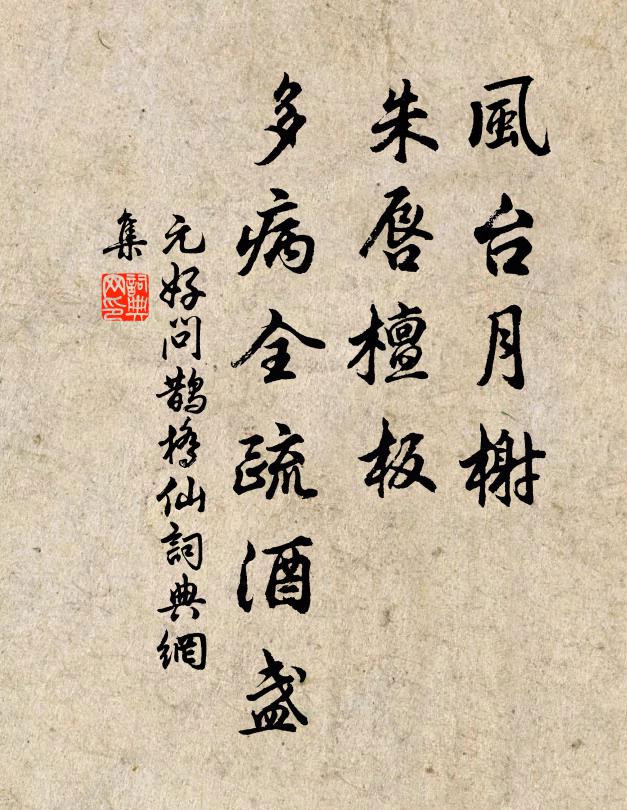 風台月榭
朱唇檀板
多病全疏酒盏
元好问鹊橋仙詞典網
集
詞典网印